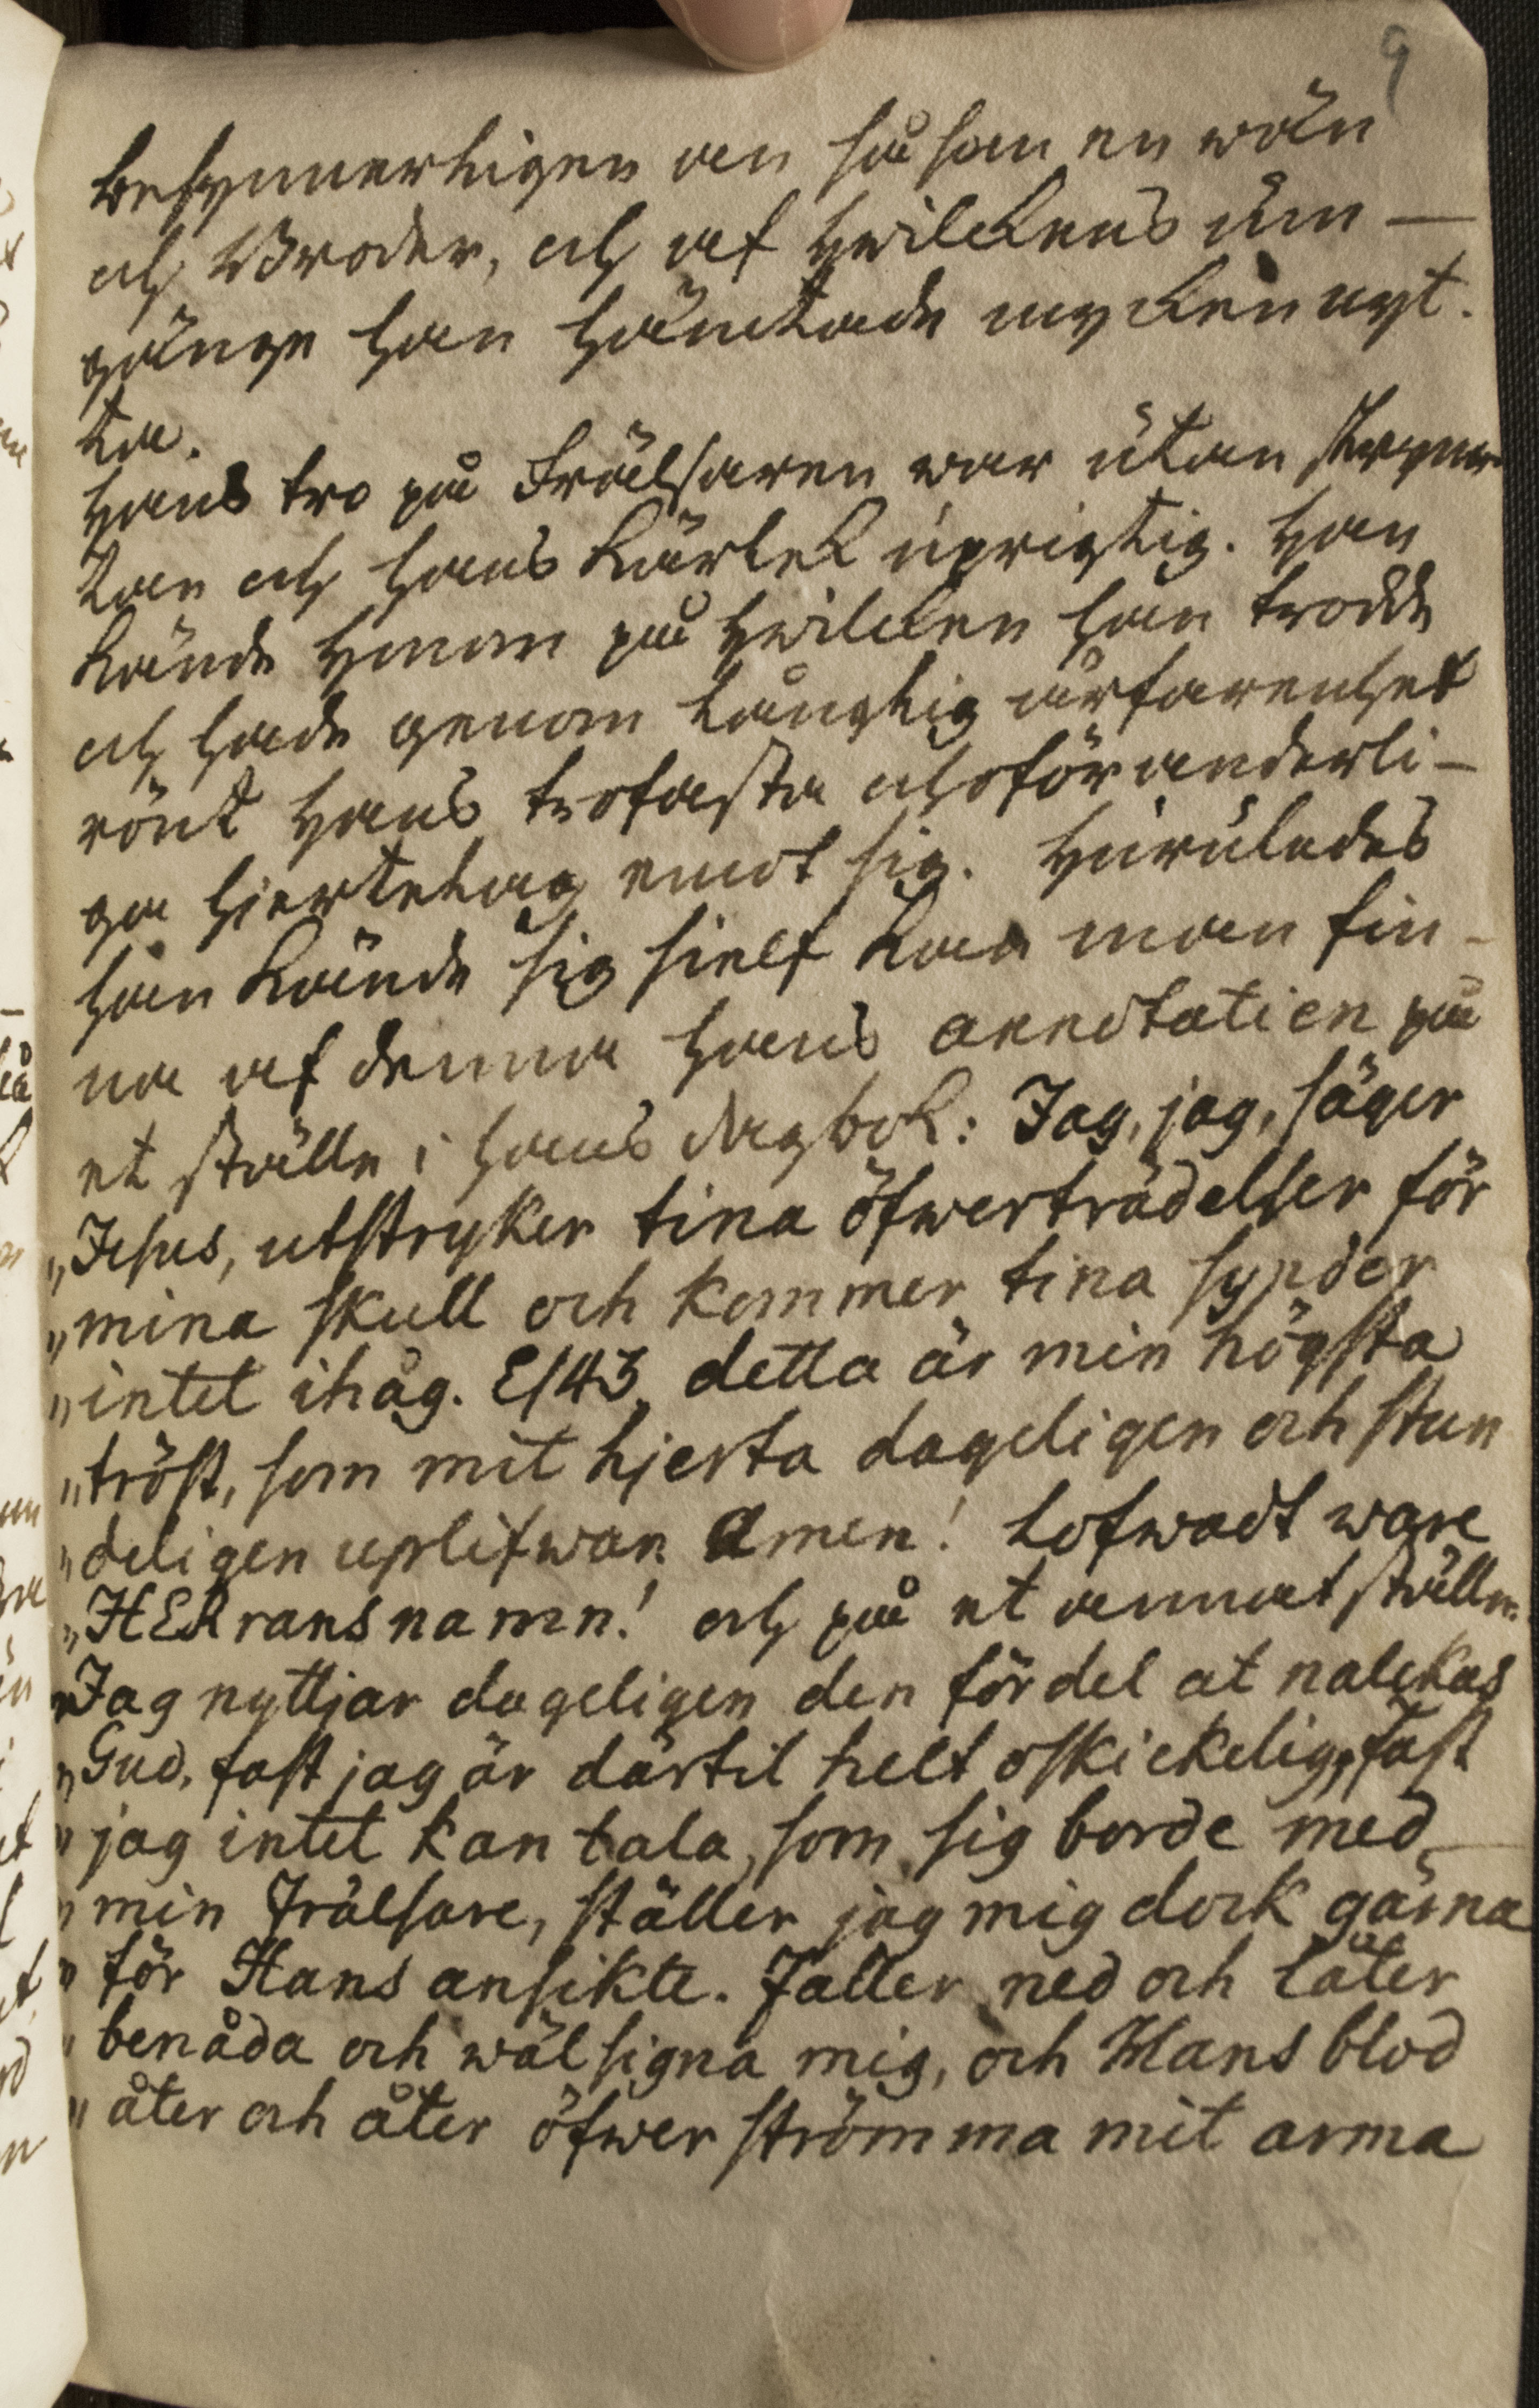 9
besynnerligen an såsom en wän
och Broder, och af hwilckens um—
gänge han hämtade mycken nyt-
ta.
Hans tro på Frälsaren war utan skrym-
tan och hans kärlek uprigtig. Han
kände Honom på hwilcken han trodde
och hade genom långlig ärfarenhet
rönt Hans trofasta och oföränderli-
ga hjertelag emot sig. Huruledes
han kände sig sielf kan man fin-
na af denna hans annotation på
et ställe i hans dagbok: Jag, jag, säger
„Jesus, utstryker tina öfwerträdelser för
„mina skull och kommer tina synder
„intet ihåg. Es 43, detta är min högsta
„tröst, som mit hjerta dageligen och stun
„deligen uplifwar. Amen! Lofwadt ware
„HERrans namn! och på et annat ställe:
„Jag nyttjar dageligen den fördel at nalckas
„Gud, fast jag är därtil helt oskickelig, fast
„jag intet kan tala, som sig borde med
„min Frälsare, ställer jag mig dock gärna
„för Hans ansikte. Faller ned och låter
„benåda och wälsigna mig, och Hans blod
„åter och åter öfwer strömma mit arma